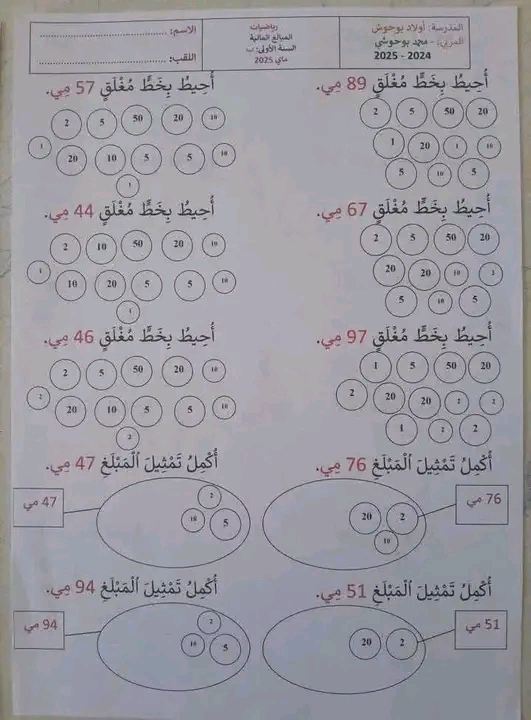 المدرسة: أولاد بوحوش
المربي: محمد بوحوشي
2024 - 2025
رياضيات
المبالغ المالية
السنة الأولى: ب
ماي 2025
الاسم:
اللقب:
أُحِيطُ بِخَطٍّ مُغْلَقٍ 89 مِي.
2 5 50 20
1 20 1 10
5 10 5
أُحِيطُ بِخَطٍّ مُغْلَقٍ 57 مِي.
2 5 50 20 10
1 20 10 5 5 10
1
أُحِيطُ بِخَطٍّ مُغْلَقٍ 67 مِي.
2 5 50 20
20 20 10
5 10 5
أُحِيطُ بِخَطٍّ مُغْلَقٍ 44 مِي.
2 10 50 20 10
1 10 20 5 5 10
1
أُحِيطُ بِخَطٍّ مُغْلَقٍ 97 مِي.
1 5 50 20
2 20 20 2 2
1 2 2
أُحِيطُ بِخَطٍّ مُغْلَقٍ 46 مِي.
2 5 50 20 10
2 20 10 5 5 10
2
أُكْمِلُ تَمْثِيلَ ٱلْمَبْلَغِ 76 مِي.
76 مي
20 2
10
أُكْمِلُ تَمْثِيلَ ٱلْمَبْلَغِ 47 مِي.
2
10 5
47 مي
أُكْمِلُ تَمْثِيلَ ٱلْمَبْلَغِ 51 مِي.
51 مي
20 2
أُكْمِلُ تَمْثِيلَ ٱلْمَبْلَغِ 94 مِي.
2
10 5
94 مي